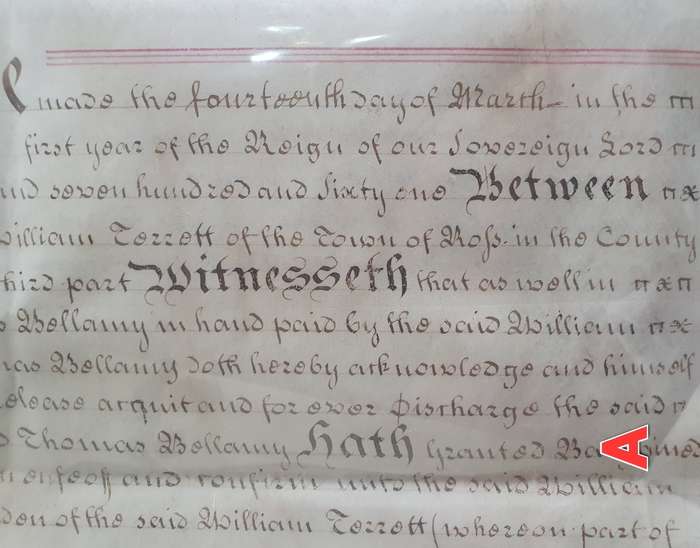 made the fourteenth day of March in the
first year of the Reign of our Sovereign Lord
nd seven hundred and Sixty one Between
illiam Terrett of the Town of Roſs in the County
hird part Witnesseth that as well in
Bellamy in hand paid by the said William
as Bellamy doth hereby acknowledge and himself
elease acquit and for ever Discharge the said
Thomas Bellamy Hath Granted A
enfeoff and confirm unto the said William
den of the said William Terrett (whereon part of